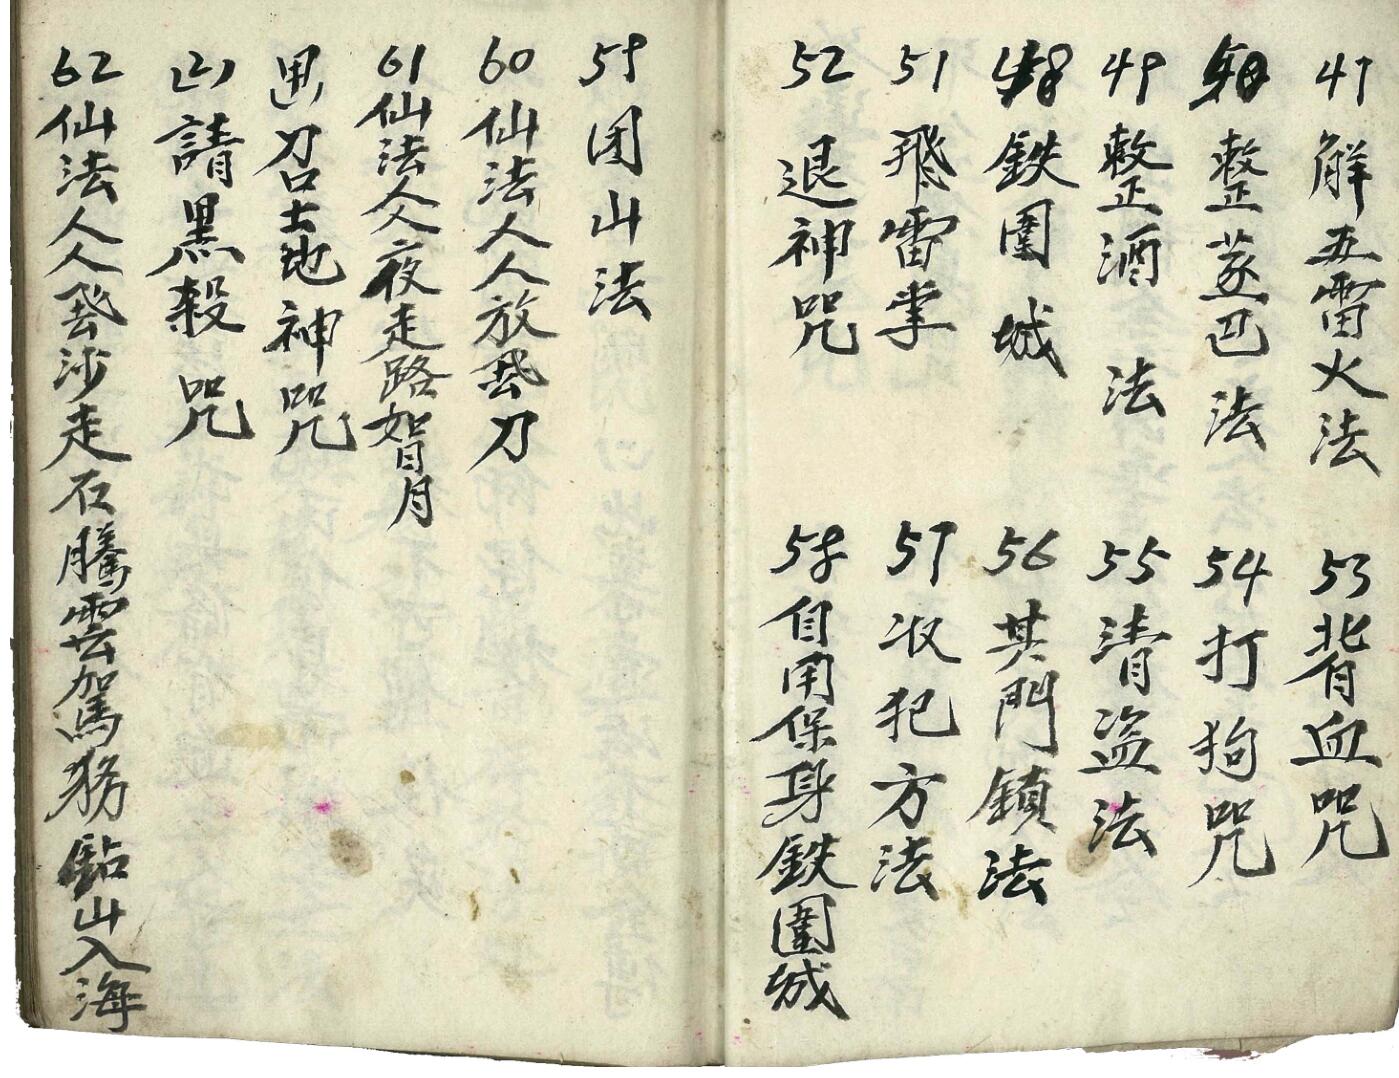 47 解五雷火法
整蒸巴法
49 整酒法
48 鉄圍城
51 飛雷掌
52 退神咒
53 背血咒
54 打狗咒
55 清盗法
56 其門鎖法
57 收犯方法
58 自用保身鉄圍城
59 团山法
60 仙法人人放飛刀
61 仙法人人夜走路如月
召土地神咒
請黑殺咒
62 仙法人人飛沙走石騰雲駕務鉆山入海